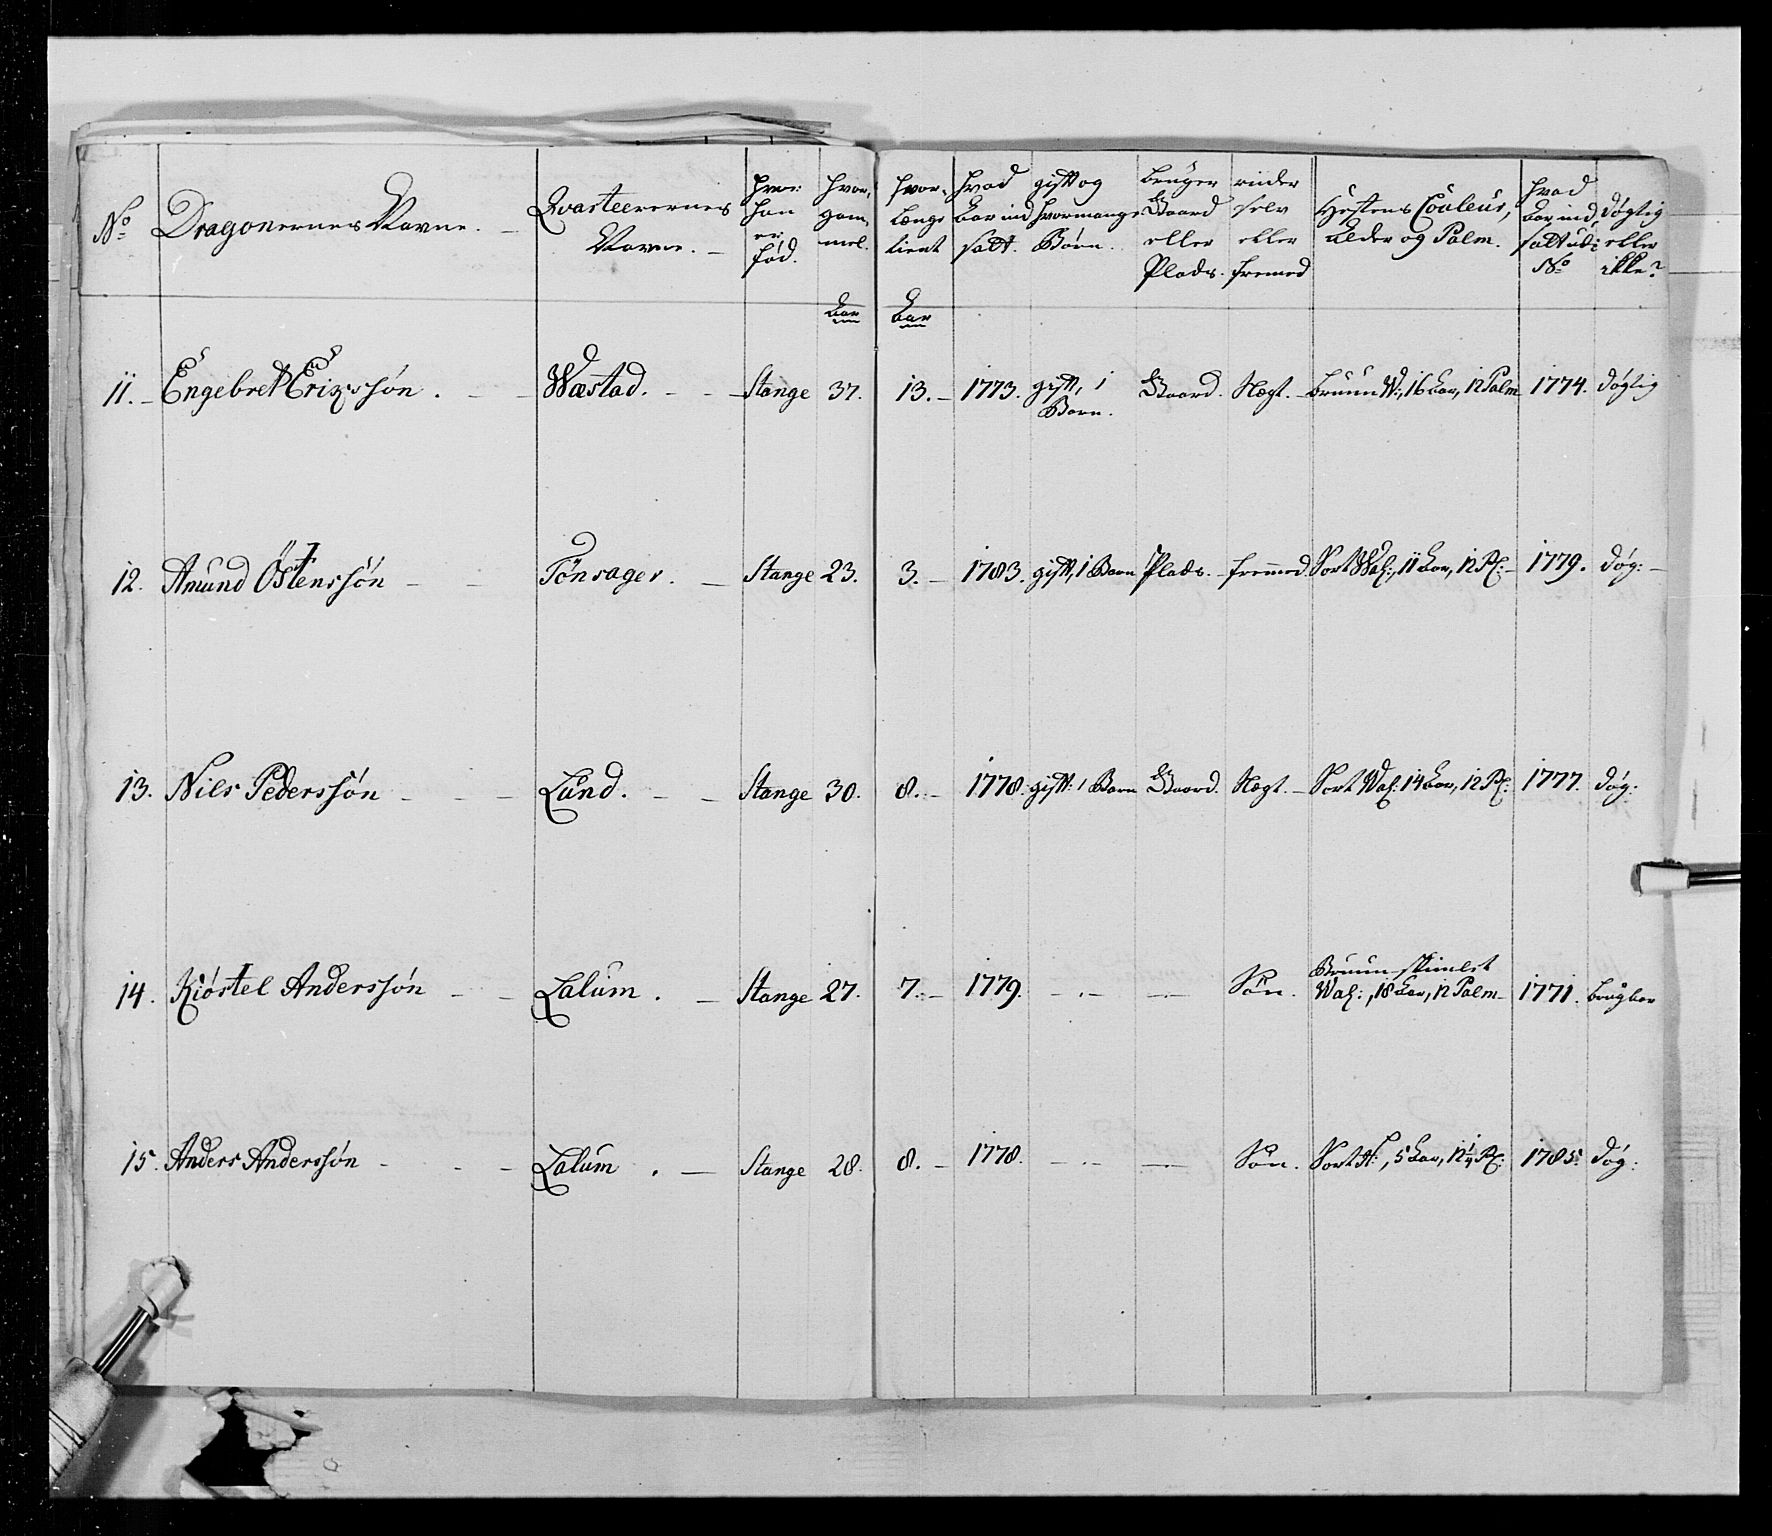 No Dragonernes Navne. Qvarteerernes Navne. hvor han er fød. hvor gammel. hvor længe tient hvad Aar ind satt. gift og hvormange Børn. bruger Gaard eller Plads. riider selv eller fremed Hestens Couleur, Alder og Palm. hvad Aar ind satt ud: No døgtig eller ikke?
Aar Aar
11. Engebret Erichssøn. Wæstad. Stange 37. 13. 1773. gift, 1 Barn. Gaard. Nægt. bruun W:, 16 Aar, 12 Palm 1774. døgtig
12. Amund Östenssøn Tönsager. Stange 23. 3. 1783. gift, 1 Barn Plads. fremmed. Sort Wal:, 11 Aar, 12 Pl: 1779. døg:
13. Nils Pederssøn Lund. Stange 30. 8. 1778. gift: 1 Barn Gaard. Nægt. Sort Wal: 14 Aar, 12 Pl: 1777. døg:
14. Kiöstel Anderssøn Lalum. Stange 27. 7. 1779. Søn. Bruun skimlet
Wal:, 18 Aar, 12 Palm 1771. brugbar
15. Anders Anderssøn Lalum. Stange 28. 8. 1778. Søn. Sort H:, 5 Aar, 12 1/4 Pl: 1785. døg: